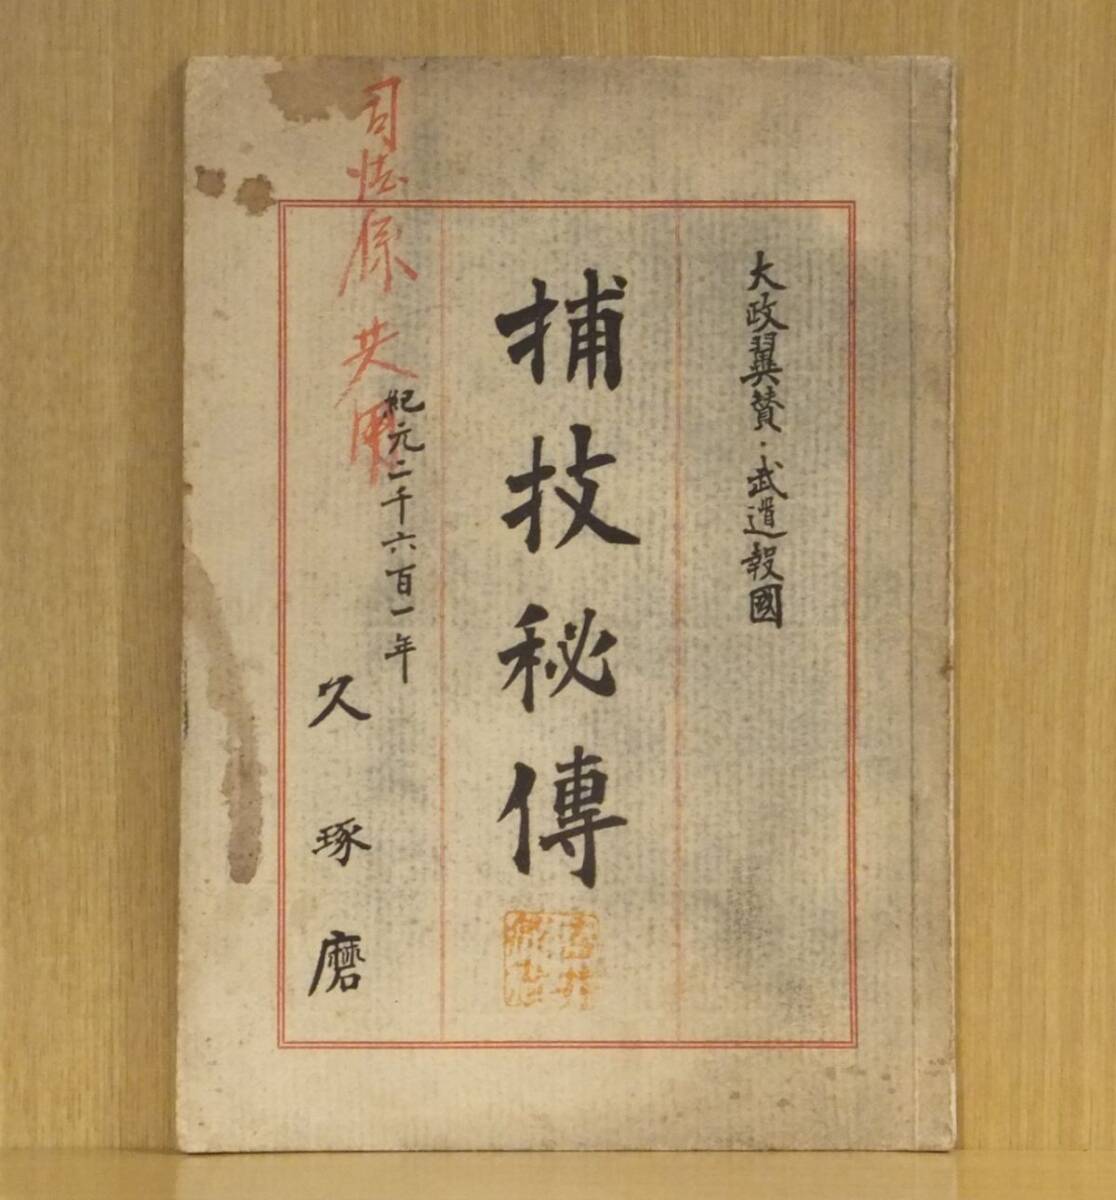 大政翼賛・武道報國
捕技秘傳
紀元二千六百一年
久琢磨
司法係 共用